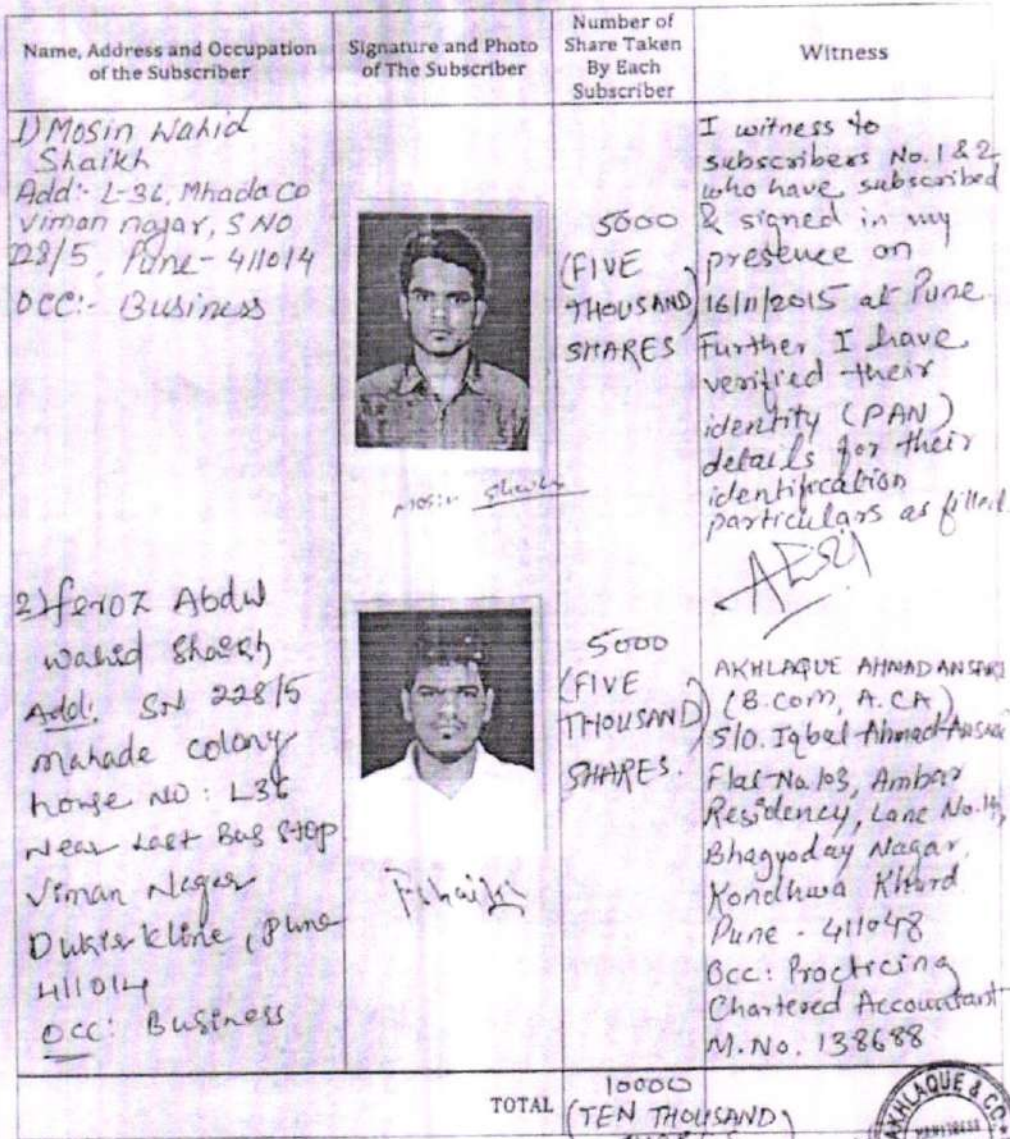 Name, Address and Occupation
of the Subscriber
Signature and Photo
of The Subscriber
Number of
Share Taken
By Each
Subscriber
Witness
1) Mosin Wahid
Shaikh
Add:- L-36, Mhada Co
Viman nagar, S NO
228/5, Pune- 411014
OCC:- Business
Mosin Shaikh
5000
(FIVE
THOUSAND)
SHARES
I witness to
subscribers No. 1 & 2
who have subscribed
& signed in my
presence on
16/11/2015 at Pune.
Further I have
verified their
identity (PAN)
details for their
identification
particulars as filled.
2) feroz Abdul
wahid Shaikh
Add: SN 228/5
mahade colony
house NO: L36
Near Last Bus Stop
Viman Nagar
Pune
411014
OCC: Business
FShaikh
5000
(FIVE
THOUSAND)
SHARES.
AKHLAQUE AHMAD ANSARI
(B.COM, A.CA)
S/O. Iqbal Ahmad Ansari
Flat No. 103, Ambar
Residency, Lane No. 14,
Bhagyoday Nagar,
Kondhwa Khurd
Pune - 411048
Occ: Practicing
Chartered Accountant
M.No. 138688
TOTAL
10000
(TEN THOUSAND)
SHARES
AKHLAQUE & CO.